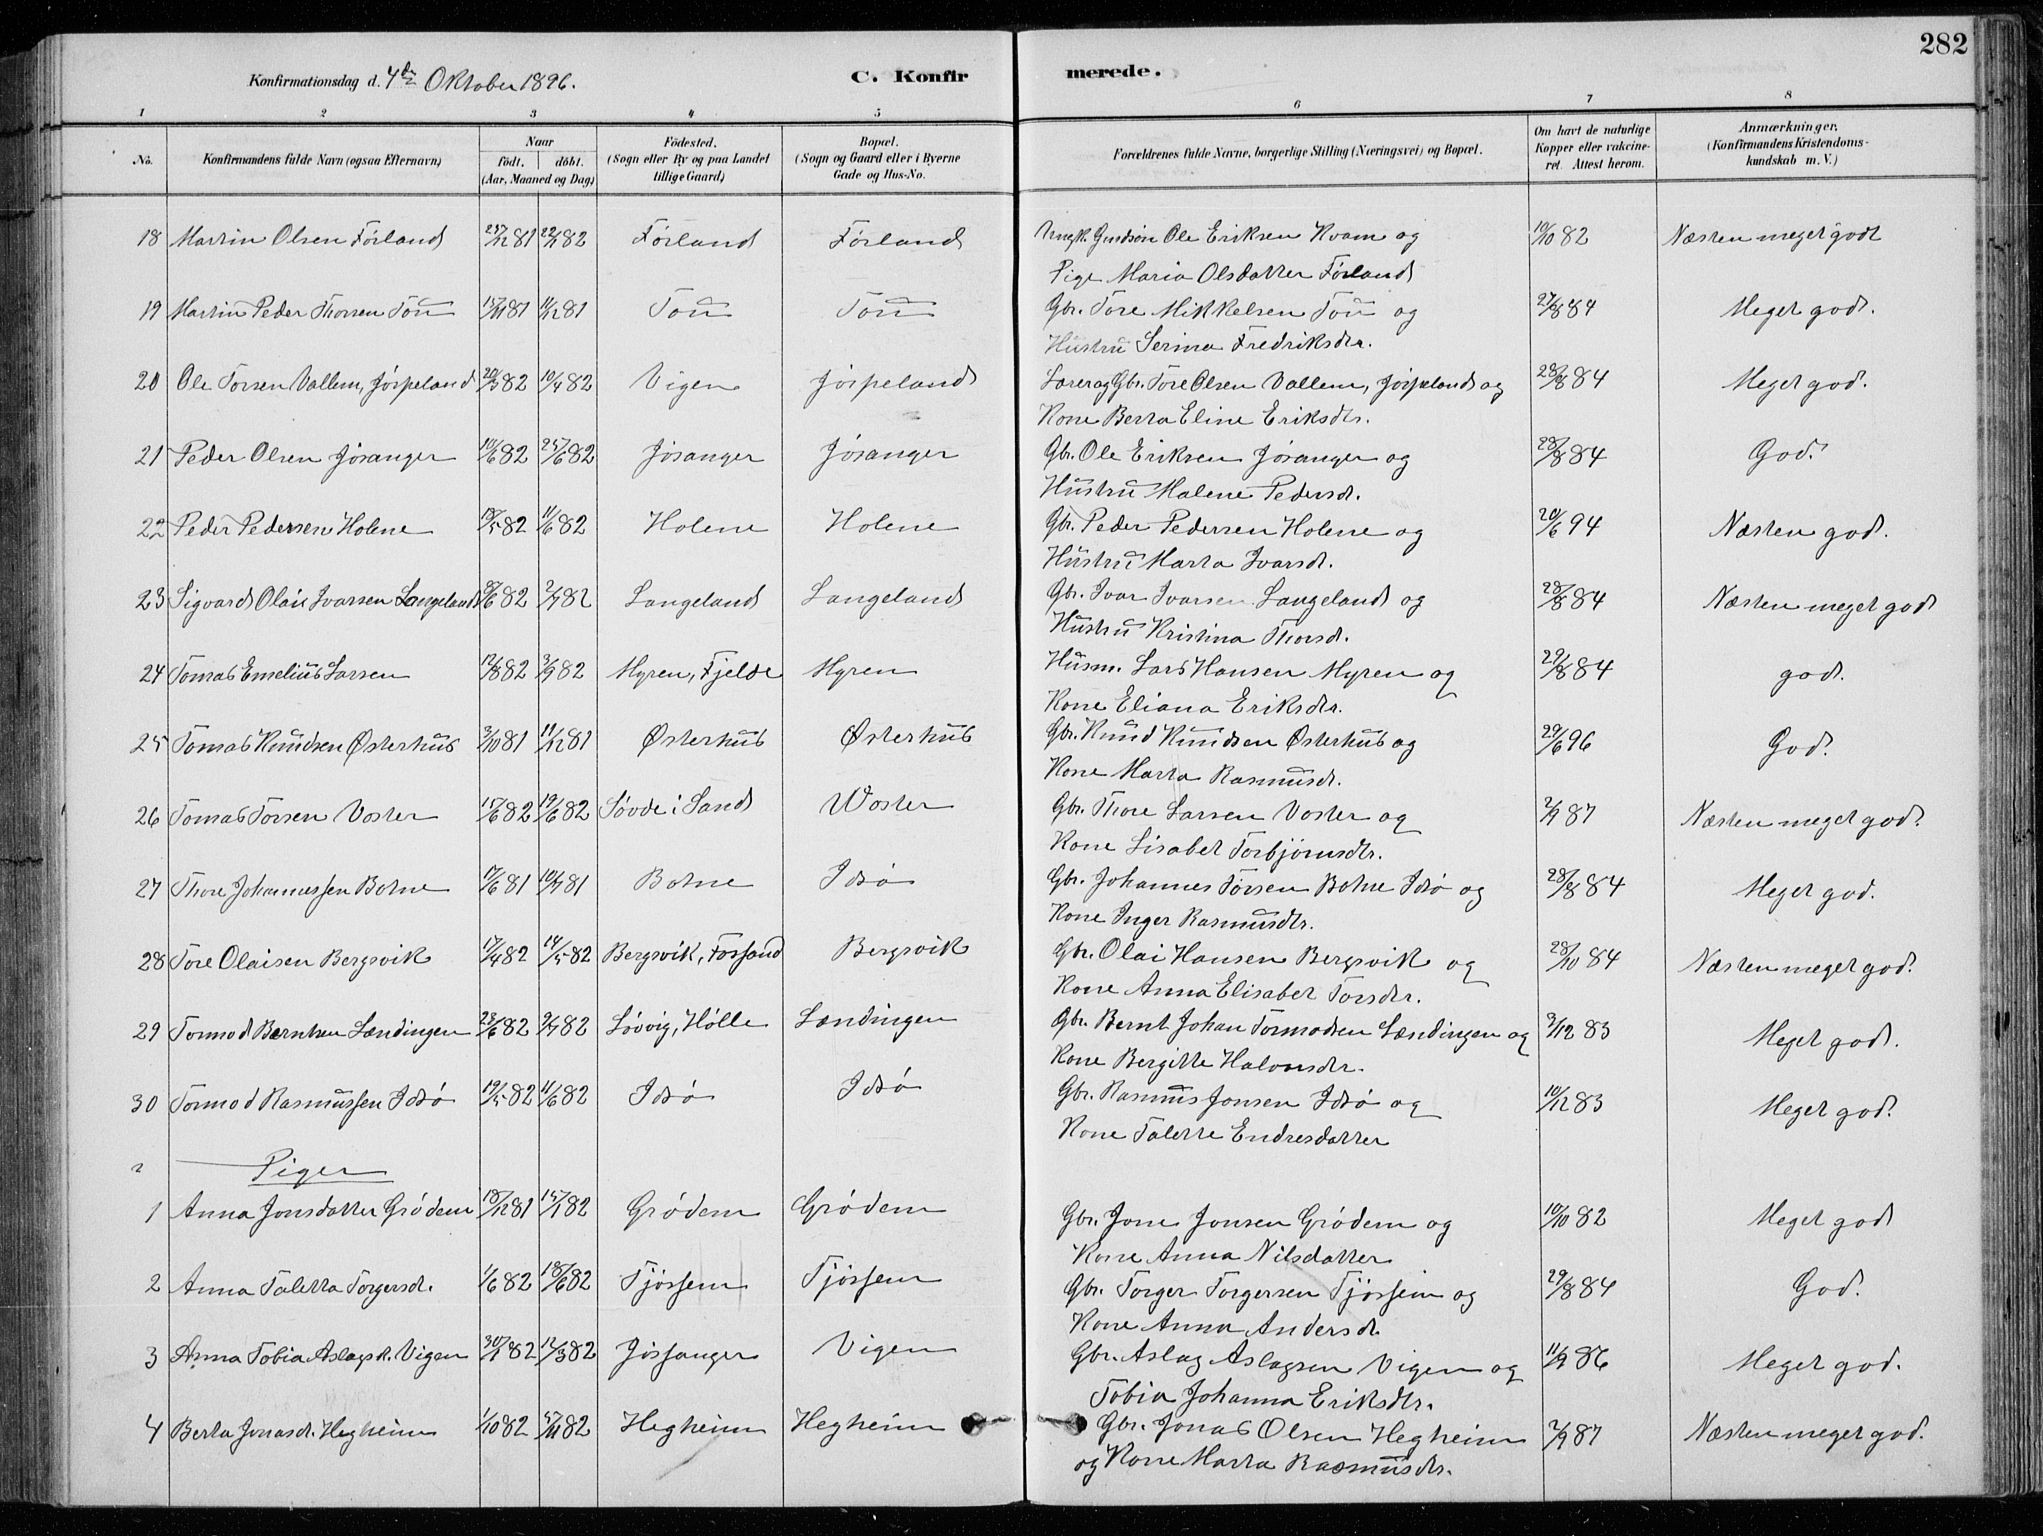 282
Konfirmationsdag d. 4de Oktober 1896.
C. Konfir
merede.
1 2 3 4 5 6 7 8
No. Konfirmandens fulde Navn (ogsaa Efternavn) Naar født. døbt. (Aar, Maaned og Dag) Fødested. (Sogn eller By og paa Landet tillige Gaard) Bopæl. (Sogn og Gaard eller i Byerne Gade og Hus-No. Forældrenes fulde Navne, borgerlige Stilling (Næringsvei) og Bopæl. Om havt de naturlige Kopper eller vakcineret. Attest herom. Anmærkninger. (Konfirmandens Kristendomskundskab m. V.)
18 Martin Olsen Førland 81 82 Førland Førland Ungk. Ole Eriksen Kvam og 10/10 82 Næsten meget godt
Pige Maria Olsdatter Førland
19 Martin Peder Thorsen Tou 81 11/12 81 Tou Tou Gbr. Tore Mikkelsen Tou og 27/8 84 Meget god.
Hustru Serina Fredriksdtr.
20 Ole Torsen Vallem, Jørpeland 20/3 82 10/4 82 Vigen Jørpeland Lærer og Gbr. Tore Olsen Vallem, Jørpeland og 28/8 84 Meget god.
Kone Berta Eline Eriksdtr.
21 Peder Olsen Jøsanger 10/6 82 25/6 82 Jøsanger Jøsanger Gbr. Ole Eriksen Jøsanger og 28/8 84 God.
Hustru Malene Pedersd.
22 Peder Pedersen Holene 18/5 82 11/6 82 Holene Holene Gbr. Peder Pedersen Holene og 20/6 94 Næsten god.
Hustru Marta Ivarsd.
23 Sigvard Olai Ivarsen Langeland 8/6 82 2/7 82 Langeland Langeland Gbr. Ivar Ivarsen Langeland og 28/8 84 Næsten meget god
Hustru Kristina Thorsd.
24 Tomas Emelius Larsen 12/8 82 3/9 82 Myren, Fjelde Myren Husm. Lars Hansen Myren og 29/8 84 god.
Kone Eliana Eriksdtr.
25 Tomas Knudsen Østerhus 3/10 81 11/12 81 Østerhus Østerhus Gbr. Knud Knudsen Østerhus og 29/6 96 God.
Kone Marta Rasmusd.
26 Tomas Torsen Voster 15/6 82 19/6 82 Søvde i Sand Woster Gbr. Thore Larsen Voster og 2/9 87 Næsten meget god.
Kone Lisabet Torbjørnsdtr.
27 Thore Johannessen Botne 17/6 81 10/7 81 Botne Idsø Gbr. Johannes Torsen Botne Idsø og 28/8 84 Meget god.
Kone Inger Rasmusdtr.
28 Tore Olaisen Bergsvik 17/4 82 14/5 82 Bergsvik, Forsand Bergsvik Gbr. Olai Hansen Bergsvik og 28/10 84 Næsten meget god.
Kone Anna Elisabet Torsdtr.
29 Tormod Berntsen Lændingen 23/6 82 9/7 82 Løvvig, Hølle Lændingen Gbr. Bernt Johan Tormodsen Lændingen og 3/12 83 Meget god.
Kone Bergitte Halvorsdtr.
30 Tormod Rasmussen Idsø 19/5 82 11/6 82 Idsø Idsø Gbr. Rasmus Jonsen Idsø og 10/12 83 Meget god.
Kone Talette Endresdatter
Piger
1 Anna Jonsdatter Grødem 18/12 81 15/1 82 Grødem Grødem Gbr. Jone Jonsen Grødem og 10/10 82 Meget god
Kone Anna Nilsdatter
2 Anna Taletta Torgersd. 1/6 82 18/6 82 Tjøssem Tjøssem Gbr. Torger Torgersen Tjøssem og 29/8 84 God.
Kone Anna Andersd.
3 Anna Tobia Aslagsd. Vigen 30/1 82 12/3 82 Jøssanger Vigen Gbr. Aslag Aslagsen Vigen og 11/9 86 Meget god.
Tobia Johanna Eriksdtr.
4 Berta Jonasd. Hegheim 1/10 82 5/11 82 Hegheim Hegheim Gbr. Jonas Olsen Hegheim 2/9 87 Næsten meget god.
og Kone Marta Rasmusdtr.